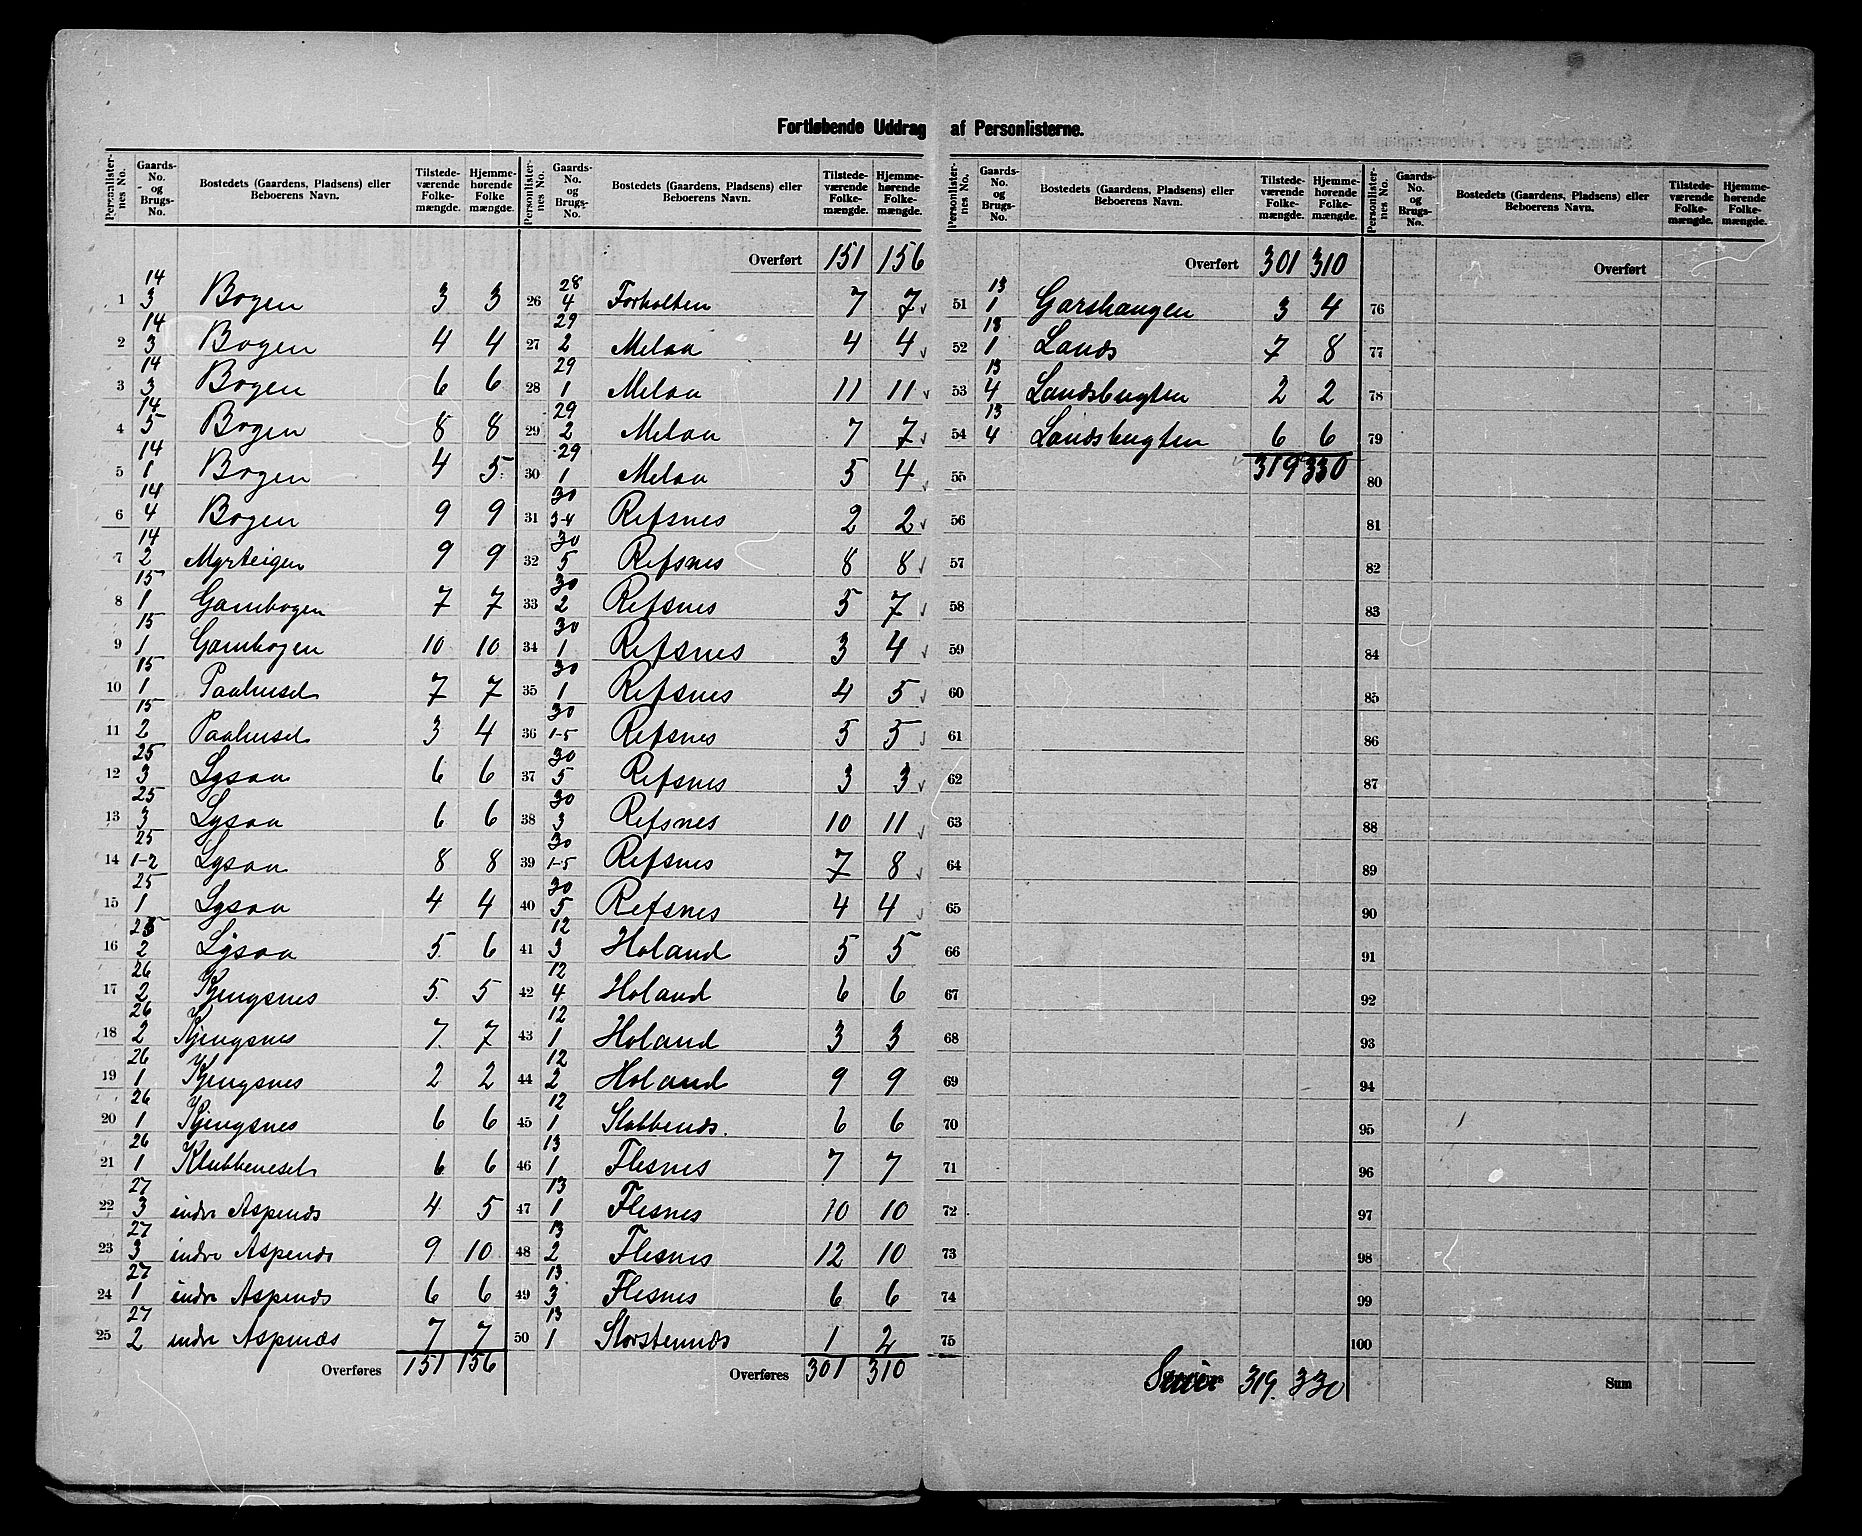 Fortløbende Uddrag af Personlisterne.
Personlister-nes No. | Gaards-No. og Brugs-No. | Bostedets (Gaardens, Pladsens) eller Beboerens Navn. | Tilstede-værende Folke-mængde. | Hjemme-hørende Folke mængde.
1 | 14 3 | Bogen | 3 | 3
2 | 14 3 | Bogen | 4 | 4
3 | 14 3 | Bogen | 6 | 6
4 | 14 5 | Bogen | 8 | 8
5 | 14 1 | Bogen | 4 | 5
6 | 14 4 | Bogen | 9 | 9
7 | 14 2 | Myrteigen | 9 | 9
8 | 15 1 | Gambogen | 7 | 7
9 | 15 1 | Gambogen | 10 | 10
10 | 15 1 | Paahusel | 7 | 7
11 | 15 2 | Paahusel | 3 | 4
12 | 25 3 | Lysaa | 6 | 6
13 | 25 3 | Lysaa | 6 | 6
14 | 25 1-2 | Lysaa | 8 | 8
15 | 25 1 | Lysaa | 4 | 4
16 | 25 2 | Lysaa | 5 | 6
17 | 26 2 | Kjengsnes | 5 | 5
18 | 26 2 | Kjengsnes | 7 | 7
19 | 26 1 | Kjengsnes | 2 | 2
20 | 26 1 | Kjengsnes | 6 | 6
21 | 26 1 | Klubbenesel | 6 | 6
22 | 27 3 | indre Aspenæs | 4 | 5
23 | 27 3 | indre Aspenæs | 9 | 10
24 | 27 1 | indre Aspenæs | 6 | 6
25 | 27 2 | indre Aspenæs | 7 | 7
Overføres 151 156
Personlister-nes No. | Gaards-No. og Brugs-No. | Bostedets (Gaardens, Pladsens) eller Beboerens Navn. | Tilstede-værende Folke-mængde. | Hjemme-hørende Folke-mængde.
Overført 151 156
26 | 28 4 | Forholten | 7 | 7
27 | 29 2 | Melaa | 4 | 4
28 | 29 1 | Melaa | 11 | 11
29 | 29 2 | Melaa | 7 | 7
30 | 29 1 | Melaa | 5 | 4
31 | 30 3-4 | Refsnes | 2 | 2
32 | 30 5 | Refsnes | 8 | 8
33 | 30 2 | Refsnes | 5 | 7
34 | 30 1 | Refsnes | 3 | 4
35 | 30 1 | Refsnes | 4 | 5
36 | 30 1-5 | Refsnes | 5 | 5
37 | 30 5 | Refsnes | 3 | 3
38 | 30 3 | Refsnes | 10 | 11
39 | 30 1-5 | Refsnes | 7 | 8
40 | 30 5 | Refsnes | 4 | 4
41 | 12 3 | Holand | 5 | 5
42 | 12 4 | Holand | 6 | 6
43 | 12 1 | Holand | 3 | 3
44 | 12 2 | Holand | 9 | 9
45 | 12 1 | Slabbenæs. | 6 | 6
46 | 13 1 | Flesnes | 7 | 7
47 | 13 1 | Flesnes | 10 | 10
48 | 13 2 | Flesnes | 12 | 10
49 | 13 3 | Flesnes | 6 | 6
50 | 13 1 | Storstennæs | 1 | 2
Overføres 301 310
Personlister-nes No. | Gaards-No. og Brugs-No. | Bostedets (Gaardens, Pladsens) eller Beboerens Navn. | Tilstede-værende Folke-mængde. | Hjemme-hørende Folke-mængde.
Overført 301 310
51 | 13 1 | Garshaugen | 3 | 4
52 | 13 1 | Lands | 7 | 8
53 | 13 4 | Landsbugten | 2 | 2
54 | 13 4 | Landsbugten | 6 | 6
55 319 330
56
57
58
59
60
61
62
63
64
65
66
67
68
69
70
71
72
73
74
75
319. 330
Personlister-nes No. | Gaards-No. og Brugs-No. | Bostedets (Gaardens, Pladsens) eller Beboerens Navn. | Tilstede-værende Folke-mængde. | Hjemme-hørende Folke-mængde.
Overført
76
77
78
79
80
81
82
83
84
85
86
87
88
89
90
91
92
93
94
95
96
97
98
99
100
Sum